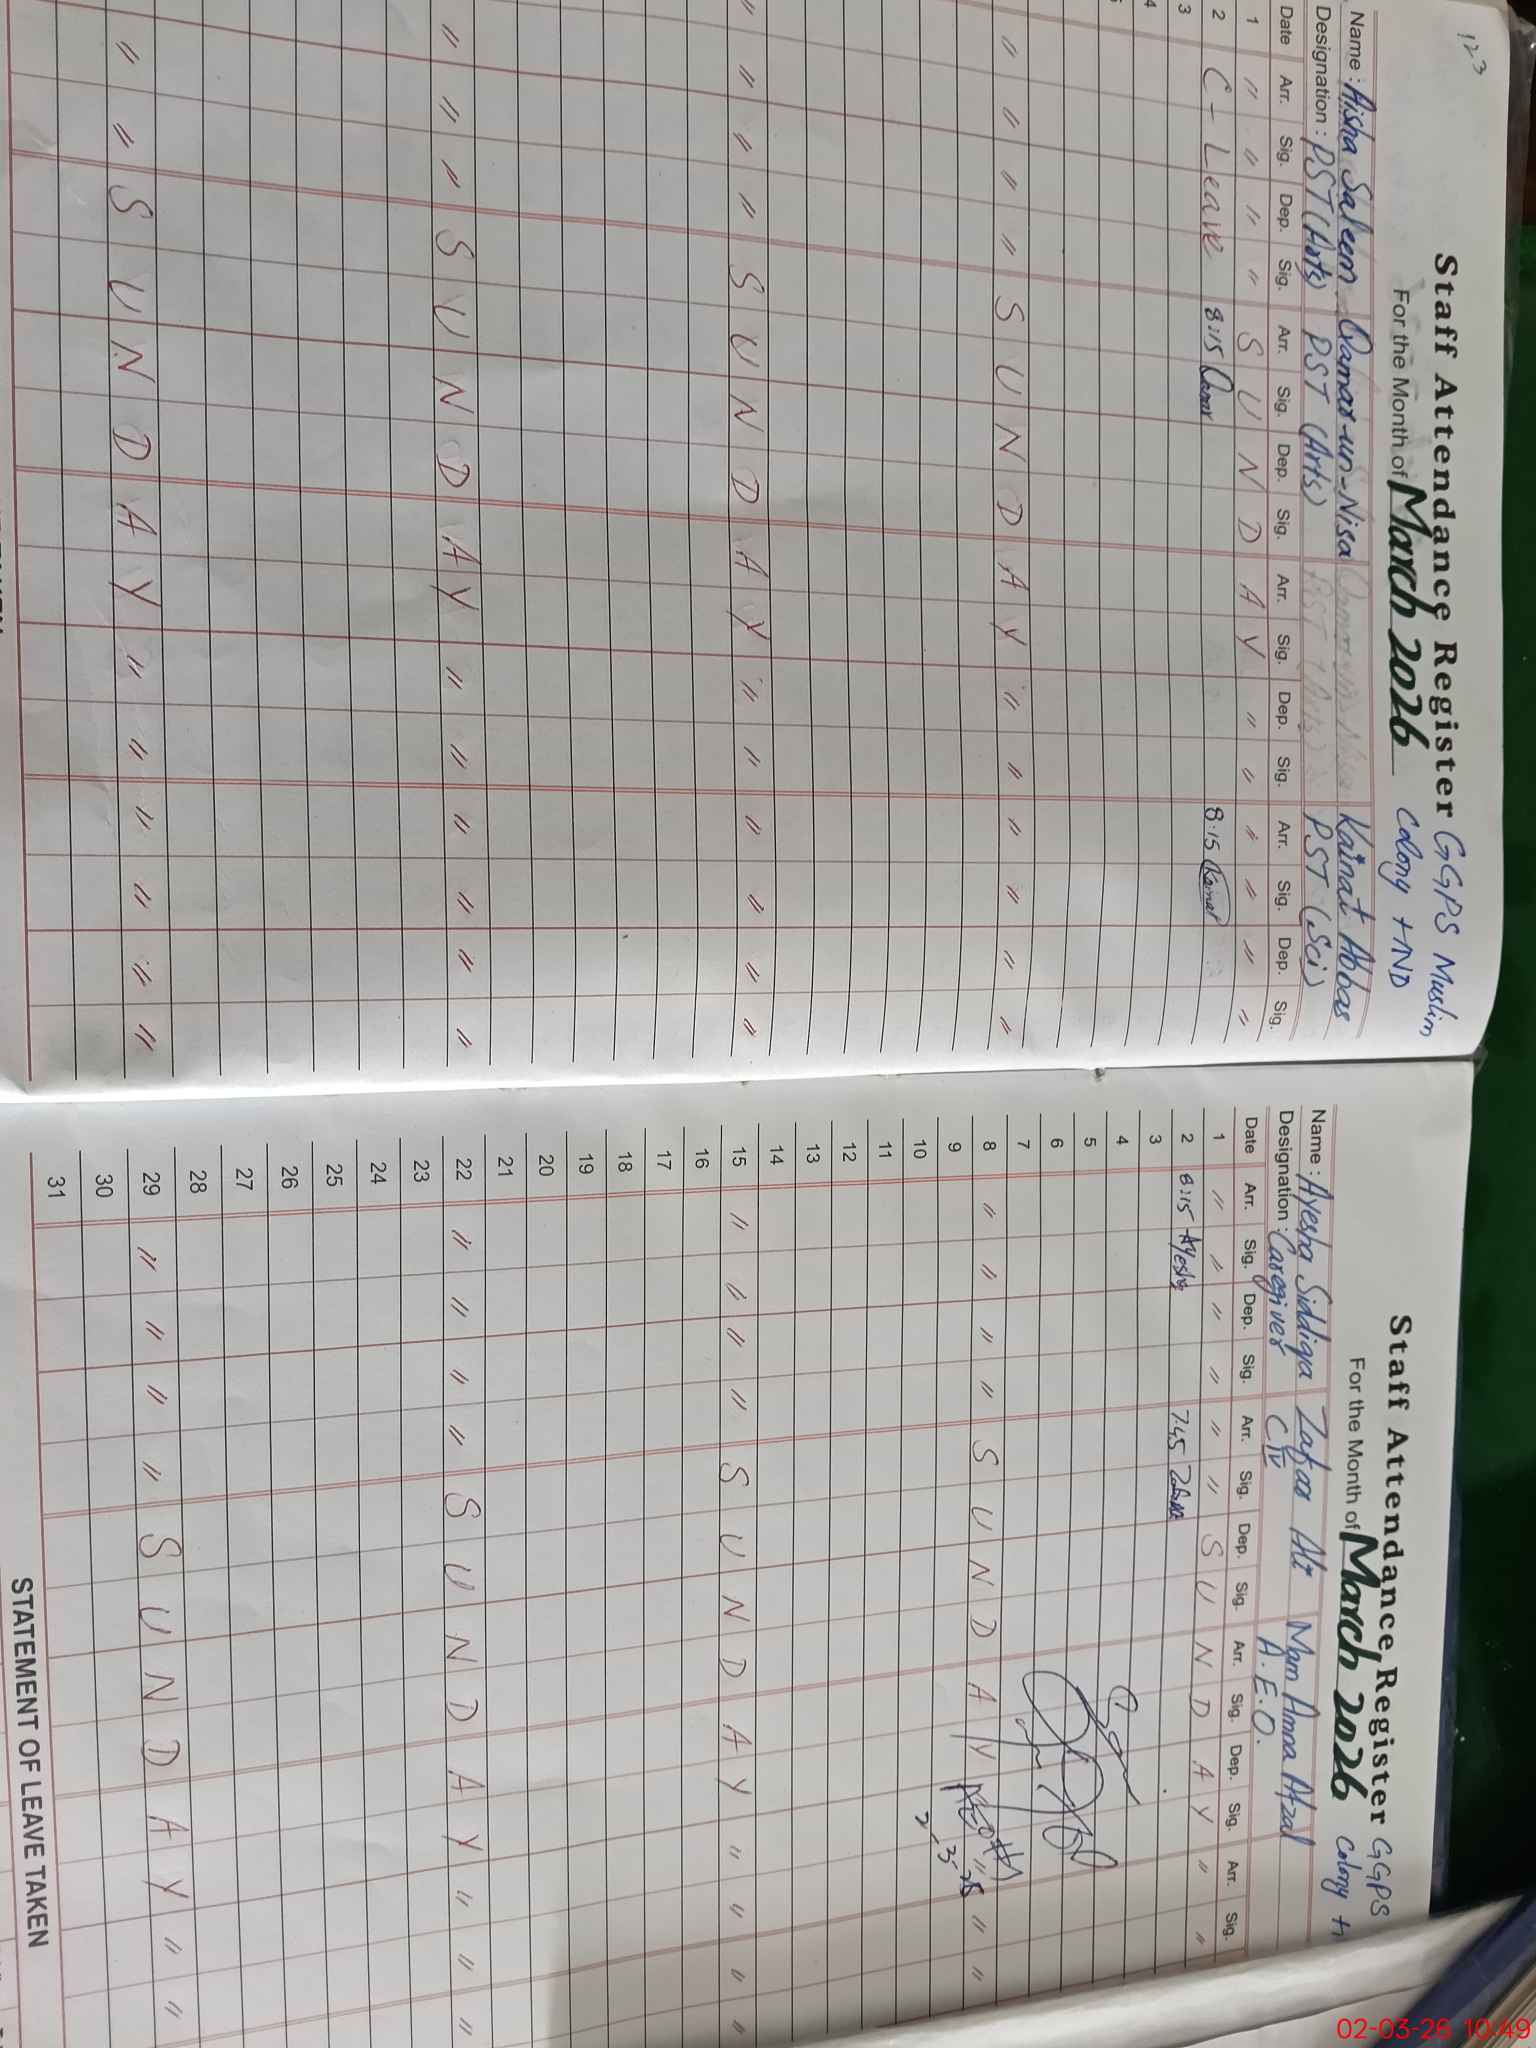 123
Staff Attendance Register GGPS Muslim
For the Month of March 2026 Colony TND
Name : Aisha Saleem Qamar-un-Nisa Kainat Abbas
Designation : PST (Arts) PST (Arts) PST (Sci)
Date Arr. Sig. Dep. Sig. Arr. Sig. Dep. Sig. Arr. Sig. Dep. Sig. Arr. Sig. Dep. Sig.
1 " " " " S U N D A Y " " " " " "
2 C - Leave 8:15 Qamar 8:15 Kainat
3
4
" " " " S U N D A Y " " " " " "
" " " " S U N D A Y " " " " " "
" " " S U N D A Y " " " " " "
" " S U N D A Y " " " " " "
Staff Attendance Register GGPS
For the Month of March 2026 Colony
Name : Ayesha Siddiqa Zafar Ali Mam Amna Afzal
Designation : Caregiver C IV A.E.O.
Date Arr. Sig. Dep. Sig. Arr. Sig. Dep. Sig. Arr. Sig. Dep. Sig. Arr. Sig.
1 " " " " " " S U N D A Y " "
2 8:15 Ayesha 7:45 Zafar
3
4
5
6
7
8 " " " " S U N D A Y " " "
9
10
11
12
13
14
15 " " " " S U N D A Y " " " "
16
17
18
19
20
21
22 " " " " S U N D A Y " " "
23
24
25
26
27
28
29 " " " " S U N D A Y " "
30
31
STATEMENT OF LEAVE TAKEN
02-03-26 10:49